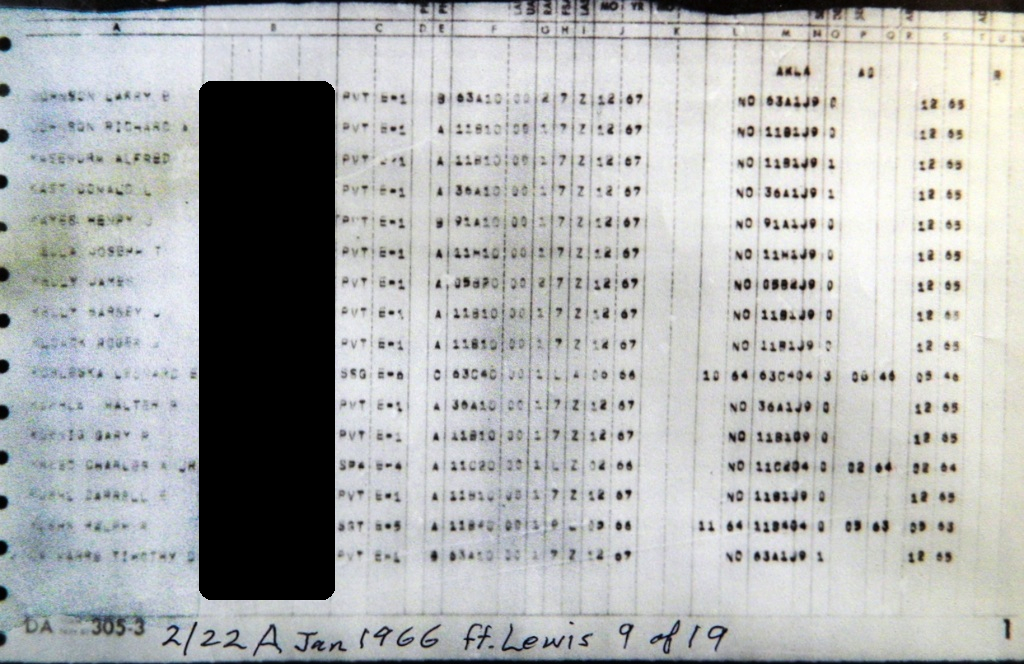 A B C D E F G H I J K L M N O P Q R S T U
AKLA AD R
JOHNSON LARRY B PVT E-1 B 63A10 00 2 7 Z 12 67 NO 63A1J9 0 12 65
JOHNSON RICHARD A PVT E-1 A 11B10 00 1 7 Z 12 67 NO 11B1J9 0 12 65
ALFRED PVT E-1 A 11B10 00 1 7 Z 12 67 NO 11B1J9 1 12 65
KAST DONALD L PVT E-1 A 36A10 00 1 7 Z 12 67 NO 36A1J9 1 12 65
HENRY J PVT E-1 B 91A10 00 1 7 Z 12 67 NO 91A1J9 0 12 65
JOSEPH T PVT E-1 A 11H10 00 1 7 Z 12 67 NO 11H1J9 0 12 65
KELLY JAMES PVT E-1 A 05B20 00 2 7 Z 12 67 NO 05B2J9 0 12 65
KELLY J PVT E-1 A 11B10 00 1 7 Z 12 67 NO 11B1J9 0 12 65
ROGER J PVT E-1 A 11B10 00 1 7 Z 12 67 NO 11B1J9 12 65
LEONARD E SSG E-6 C 63C40 00 1 L A 06 66 10 64 63C404 3 06 46 05 46
WALTER R PVT E-1 A 36A10 00 1 7 Z 12 67 NO 36A1J9 0 12 65
GARY R PVT E-1 A 11B10 00 1 7 Z 12 67 NO 11B1J9 0 12 65
CHARLES A JR SP4 E-4 A 11C20 00 1 L Z 02 66 NO 11C204 0 02 64 02 64
DARRELL E PVT E-1 A 11B10 00 1 7 Z 12 67 NO 11B1J9 0 12 65
RALPH R SGT E-5 A 11B40 00 1 09 66 11 64 11B404 0 09 63 09 63
TIMOTHY D PVT E-1 B 63A10 00 1 7 Z 12 67 NO 63A1J9 1 12 65
DA 305-3 2/22 A Jan 1966 ft. Lewis 9 of 19 1